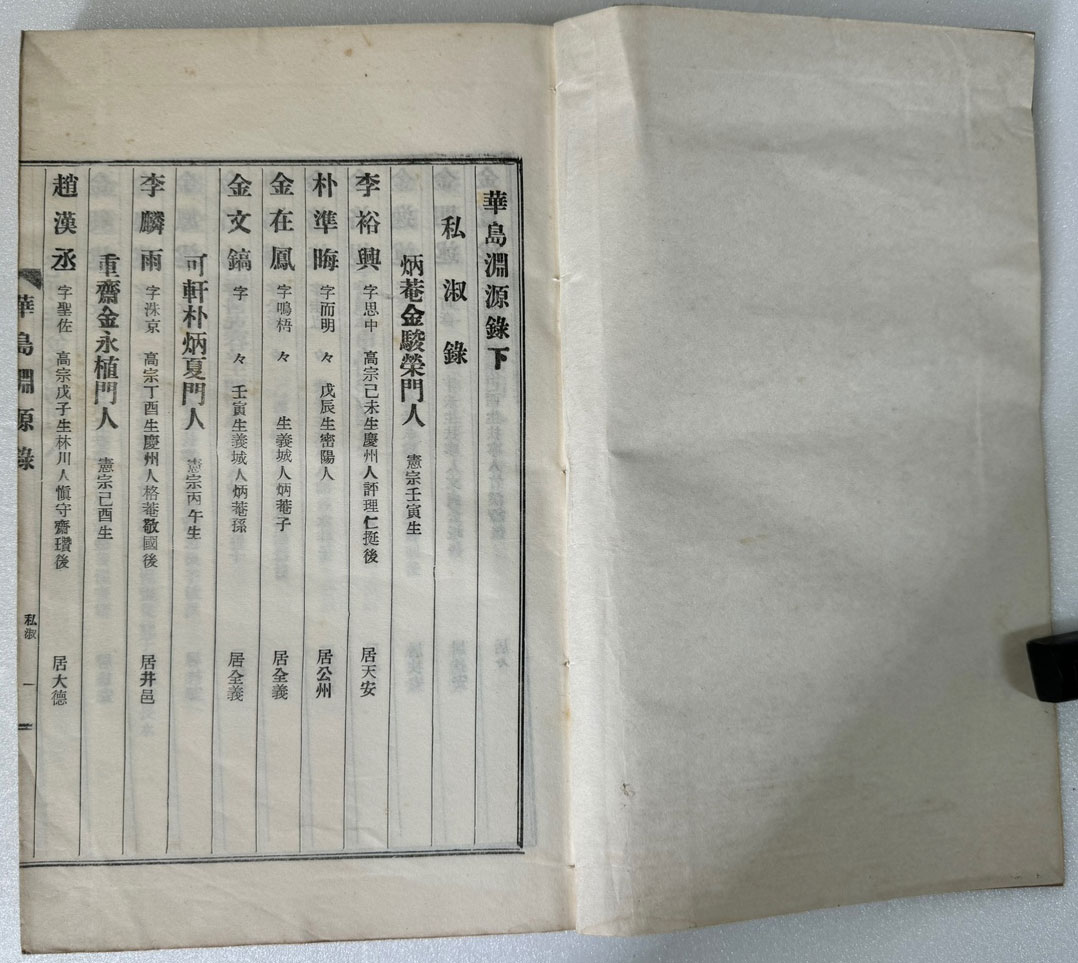 華島淵源錄下
私淑錄
炳菴金駿榮門人 憲宗壬寅生
李裕興 字思中 高宗己未生慶州人評理仁挺後 居天安
朴準晦 字而明 々 戊辰生密陽人 居公州
金在鳳 字鳴梧 々 生義城人炳菴子 居全義
金文鎬 字 々 壬寅生義城人炳菴孫 居全義
可軒朴炳夏門人 憲宗丙午生
李麟雨 字洙京 高宗丁酉生慶州人格菴敬國後 居井邑
重齋金永植門人 憲宗己酉生
趙漢丞 字聖佐 高宗戊子生林川人愼守齋瓚後 居大德
華島淵源錄 私淑 一